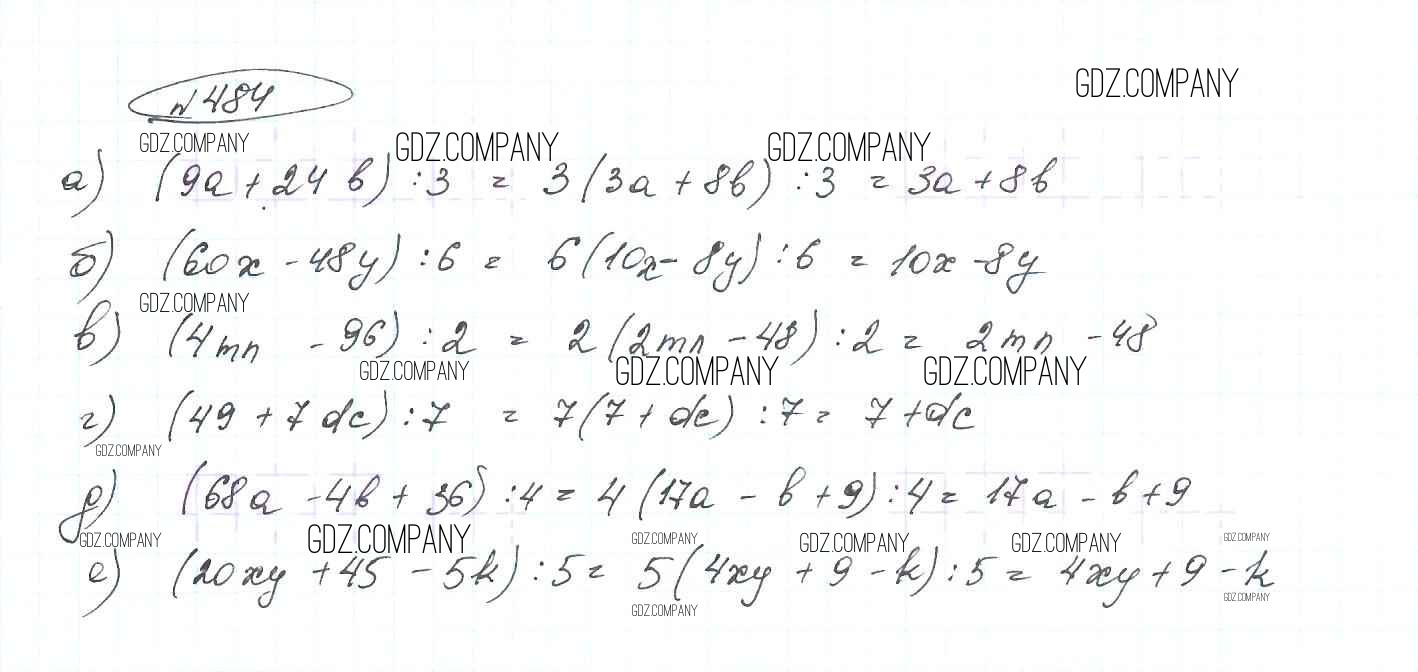 GDZ.COMPANY
№ 484
GDZ.COMPANY GDZ.COMPANY GDZ.COMPANY
а) (9a + 24 b) : 3 = 3 (3a + 8b) : 3 = 3a + 8b
б) (60x - 48y) : 6 = 6 (10x - 8y) : 6 = 10x - 8y
GDZ.COMPANY
в) (4mn - 96) : 2 = 2 (2mn - 48) : 2 = 2mn - 48
GDZ.COMPANY GDZ.COMPANY GDZ.COMPANY
г) (49 + 7dc) : 7 = 7(7 + dc) : 7 = 7 + dc
GDZ.COMPANY
д) (68a - 4b + 36) : 4 = 4 (17a - b + 9) : 4 = 17a - b + 9
GDZ.COMPANY GDZ.COMPANY GDZ.COMPANY GDZ.COMPANY GDZ.COMPANY GDZ.COMPANY
е) (20xy + 45 - 5k) : 5 = 5 (4xy + 9 - k) : 5 = 4xy + 9 - k
GDZ.COMPANY GDZ.COMPANY